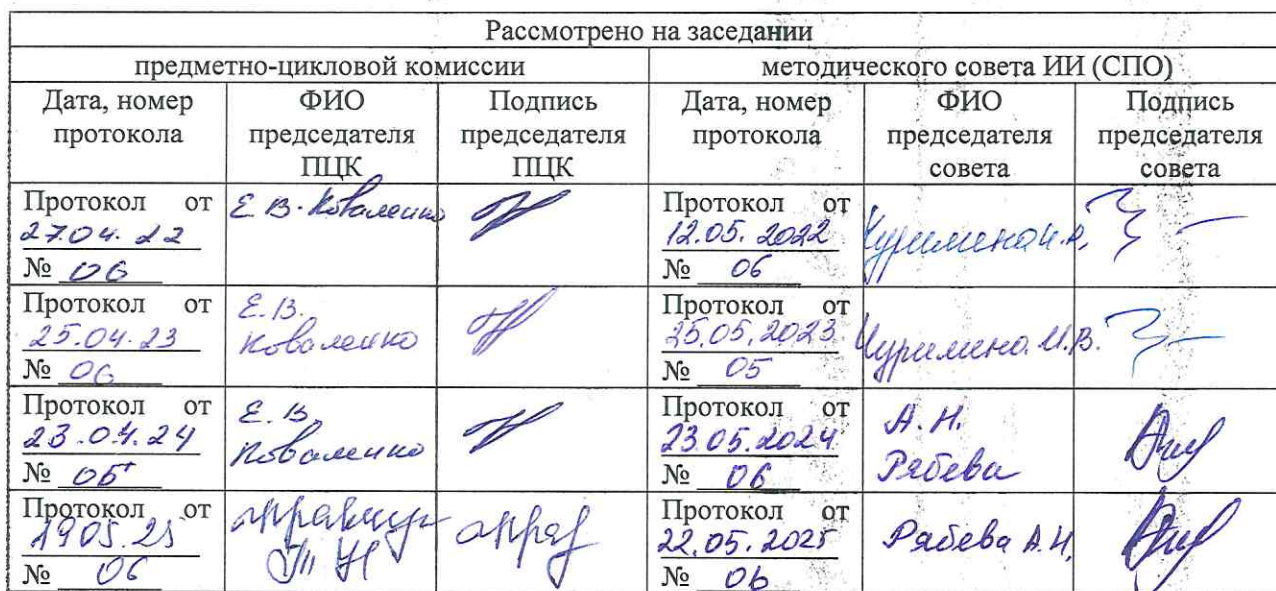 Рассмотрено на заседании
предметно-цикловой комиссии методического совета ИИ (СПО)
Дата, номер протокола
ФИО председателя ПЦК
Подпись председателя ПЦК
Дата, номер протокола
ФИО председателя совета
Подпись председателя совета
Протокол от
27.04.22
№ 06
Е.В. Коваленко
Протокол от
12.05.2022
№ 06
Протокол от
25.04.23
№ 06
Е.В.
Коваленко
Протокол от
25.05.2023
№ 05
И.В.
Протокол от
23.04.24
№ 05
Е.В.
Коваленко
Протокол от
23.05.2024
№ 06
А.Н.
Рябева
Протокол от
19.05.25
№ 06
Протокол от
22.05.2025
№ 06
Рябева А.Н.